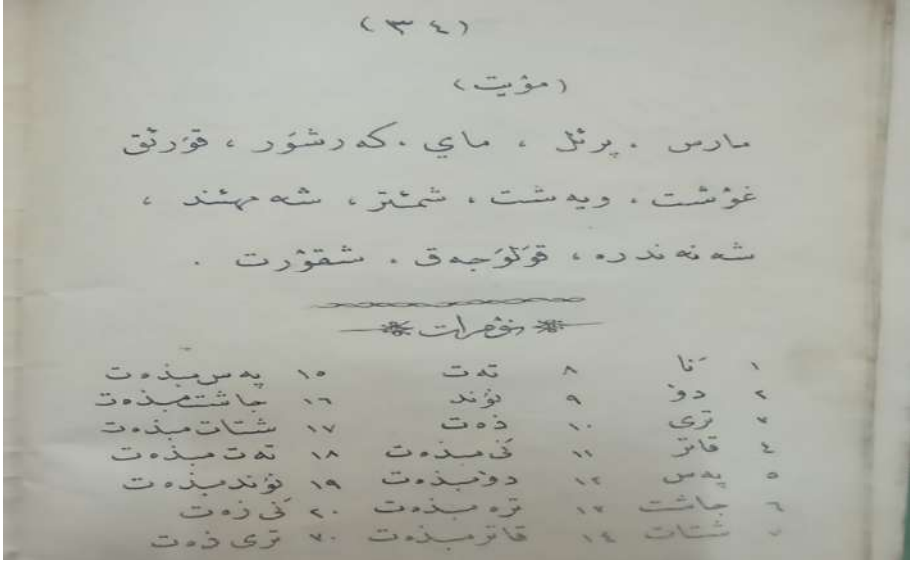 (٣٤)
(مۋيت)
مارس ، پرئل ، ماي ، كەرشۋَر ، قۋَرئق
غۋشت ، ويەشت ، شمئتر ، شەمهئند ،
شەنەندرە ، قۋَلۋَجەق ، شقۋرت .
نۋمرات
١ َنا ٨ تەت ١٥ پەس مبذەت
٢ دۋ ٩ نۋند ١٦ جاشت مبذەت
٣ ترى ١٠ ذەت ١٧ شتات مبذەت
٤ قاتر ١١ َنى مبذەت ١٨ تەت مبذەت
٥ پەس ١٢ دۋمبذەت ١٩ نۋند مبذەت
٦ جاشت ١٣ ترە مبذەت ٢٠ َنى زەت
٧ شتات ١٤ قاتر مبذەت ٣٠ ترى ذەت